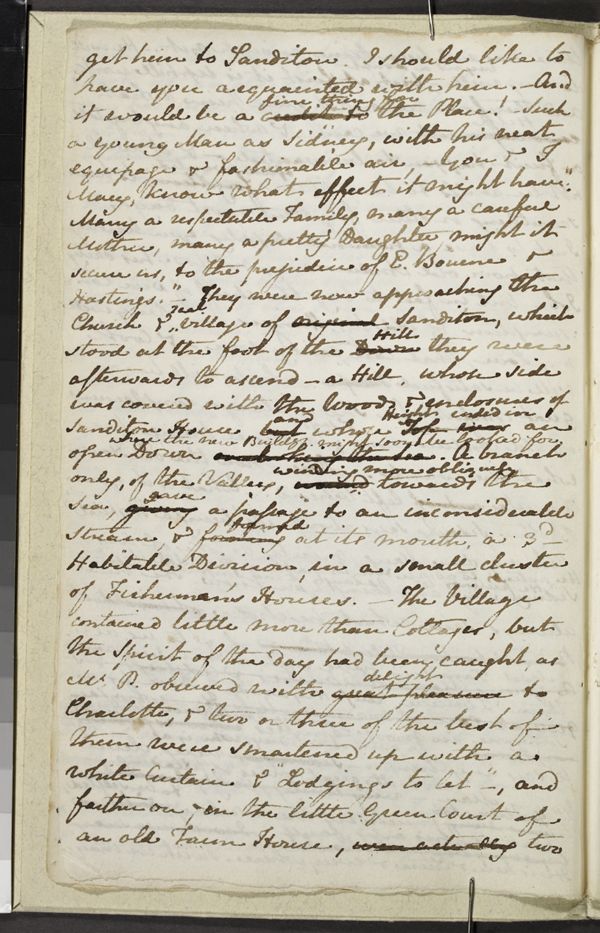 get him to Sanditon. I should like to
have you acquainted with him. – And
fine thing for
it would be a to the Place! – Such
a young Man as Sidney, with his neat
equipage & fashionable air, – You & I
Mary, know what effect it might have:
Many a respectable Family, many a careful
Mother, many a pretty Daughter, might it
secure us, to the prejudice of E. Bourne &
Hastings." – They were now approaching the
real
Church & village of original Sanditon, which
Hill
stood at the foot of the Down they were
afterwards to ascend – a Hill, whose side
was covered with the Woods & enclosures of
and Height ended in
Sanditon House but whose Top was an
where the new Buildgs might soon be looked for
open Down . A branch
winding more obliquely
only, of the Valley, towards the
gave
Sea, giving a passage to an inconsiderable
formed
stream, & forming at its mouth, a 3d
Habitable Division, in a small cluster
of Fisherman's Houses. – The Village
contained little more than Cottages, but
the Spirit of the day had been caught, as
delight
Mr P. observed with great pleasure to
Charlotte, & two or three of the best of
them were smartened up with a
white Curtain & "Lodgings to let" –, and
farther on, in the little Green Court of
an old Farm House, were actually two